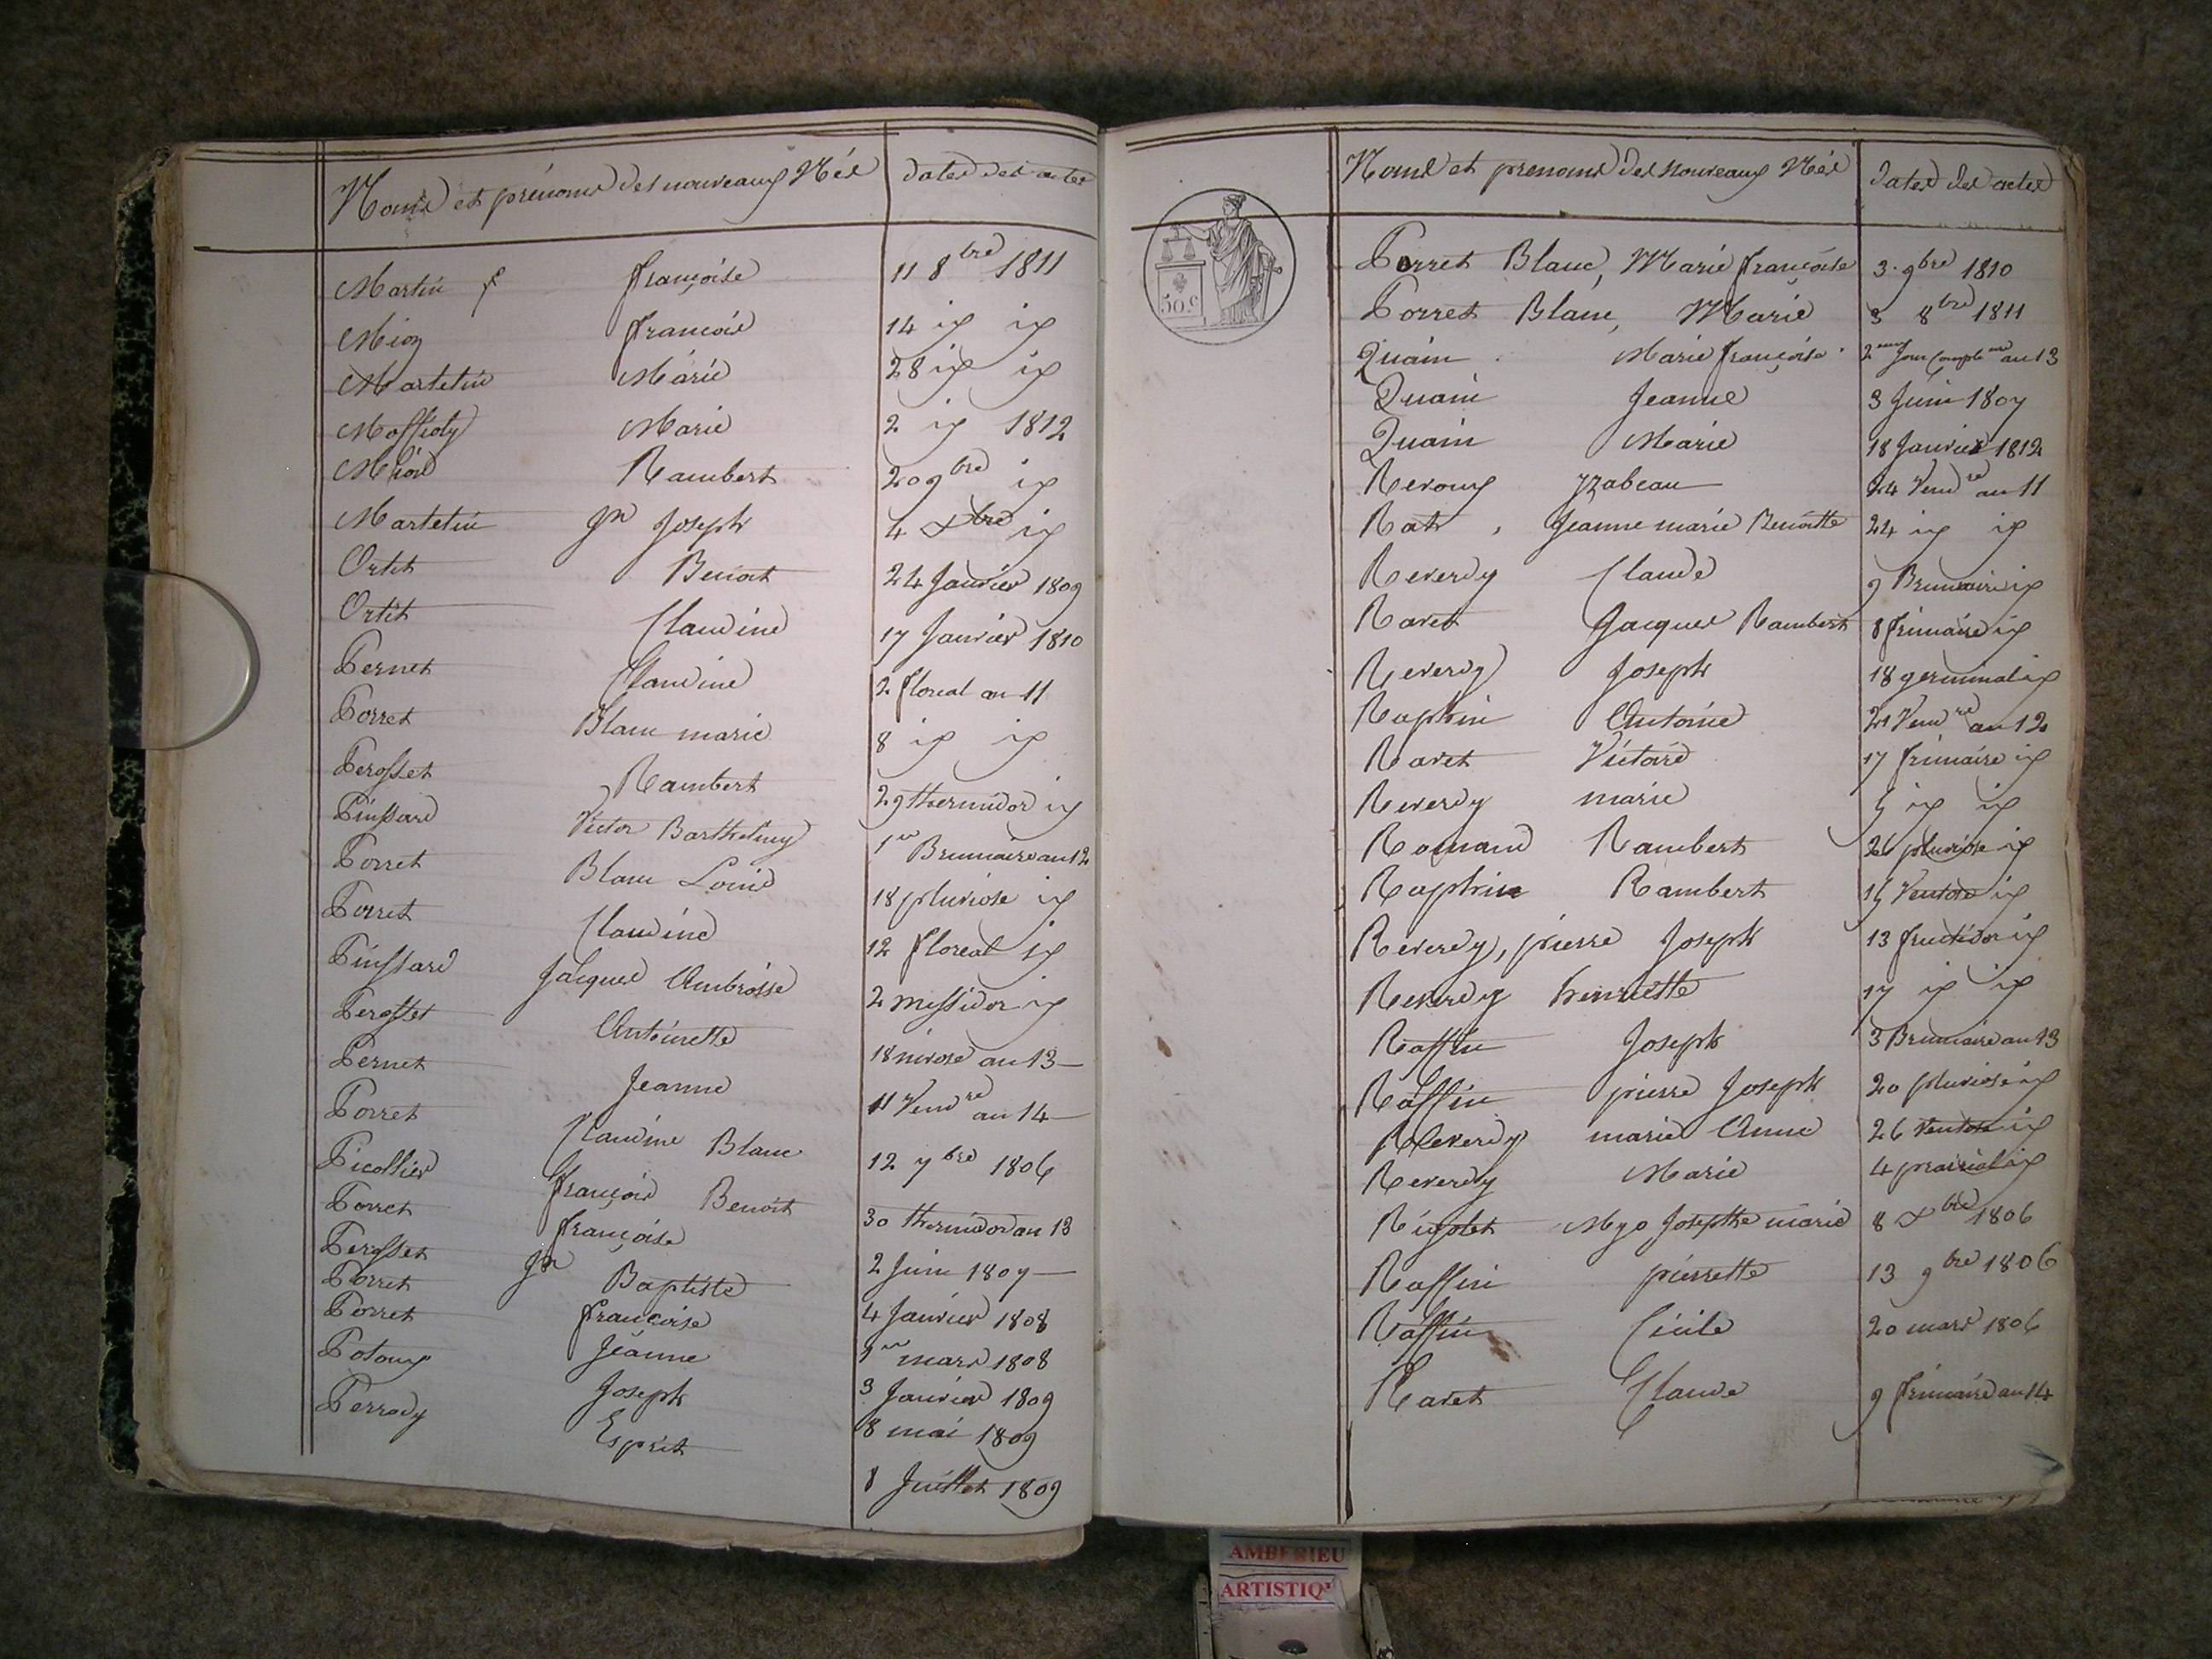 Noms et prénoms des nouveaux Nés dates des actes
Martin f. françoise 11 8bre 1811
Mion francois 14 id id
Martelin Marie 28 id id
Marie 2 id 1812
Rambert 20 9bre id
Martelin jn Joseph 4 Xbre id
Ortit Benoit 24 Janvier 1809
Ortit Claudine 17 Janvier 1810
Pernet Claudine 2 floreal an 11
Porret Blanc marie 8 id id
Perosset Rambert 29 thermidor id
Pinssard Victor Barthelmy 1er Brumaire an 12
Porret Blanc Louis 18 pluviose id
Porret Claudine 12 floreal id
Pinssard Jacques Ambroisse 2 messidor id
Perosset Antoinette 18 nivose an 13
Pernet Jeanne 11 Vendre an 14
Porret Claudine Blanc 12 7bre 1806
Picollier françois Benoit 30 thermidor an 13
Porret françoise 2 Juin 1807
Perosset jn Baptiste 4 Janvier 1808
Porret françoise 1er mars 1808
Porret Jeanne 3 Janvier 1809
Joseph 8 mai 1809
Perrody Esprit 8 Juillet 1809
Noms et prenoms des nouveaux Nés dates des actes
50.c
Porret Blanc, Marie françoise 3. 9bre 1810
Porret Blanc, Marie 3 8bre 1811
Quain Marie françoise 2eme Jour Complre an 13
Quain Jeanne 3 Juin 1807
Quain Marie 18 Janvier 1812
Revoux Yzabeau 24 Vendre an 11
Rat, Jeanne marie Benoitte 24 id id
Reverdy Claude 9 Brumaire id
Ravet Jacques Rambert 8 frimaire id
Reverdy Joseph 18 germinal id
Raphin Antoine 21 Vendre an 12
Ravet Victoire 17 frimaire id
Reverdy marie id id
Romand Rambert 26 pluviose id
Raphin Rambert 15 Ventose id
Reverdy, pierre Joseph 13 fructidor id
Reverdy henriette 17 id id
Raffin Joseph 3 Brumaire an 13
Raffin pierre Joseph 20 pluviose id
Reverdy marie Anne 26 Ventose id
Reverdy Marie 4 prairial id
Josephe marie 8 Xbre 1806
Raffin pierrette 13 9bre 1806
Raffin Cicile 20 mars 1806
Ravet Claude 9 frimaire an 14
AMBERIEU
ARTISTIQ